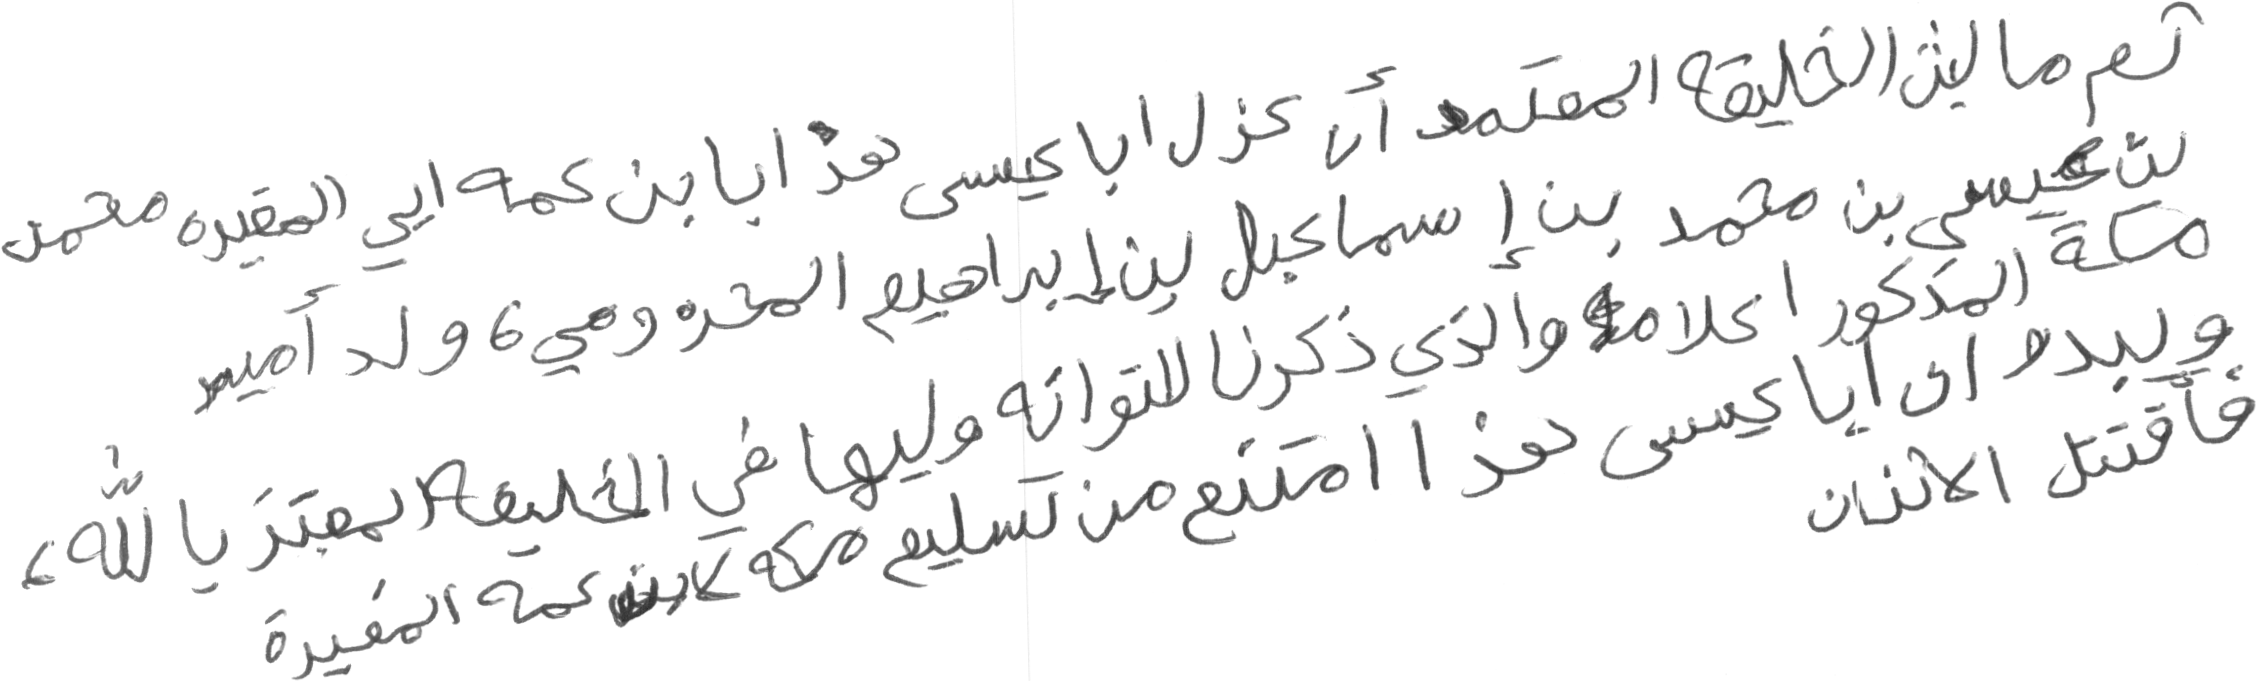 ثم ما لبث الخليفة المعتمد أن عزل ابا عيسى هذا بابن عمه ابي المغيره محمد
بن عيسى بن محمد بن إسماعيل بن إبراهيم المخزومي، ولد أمير
مكة المذكور اعلامه والذي ذكرنا للتو انه وليها في الخليفة المعتز بالله،
ويبدو ان أبا عيسى هذا امتنع من تسليم مكه لابن عمه المغيرة
فأقتتل الاثنان